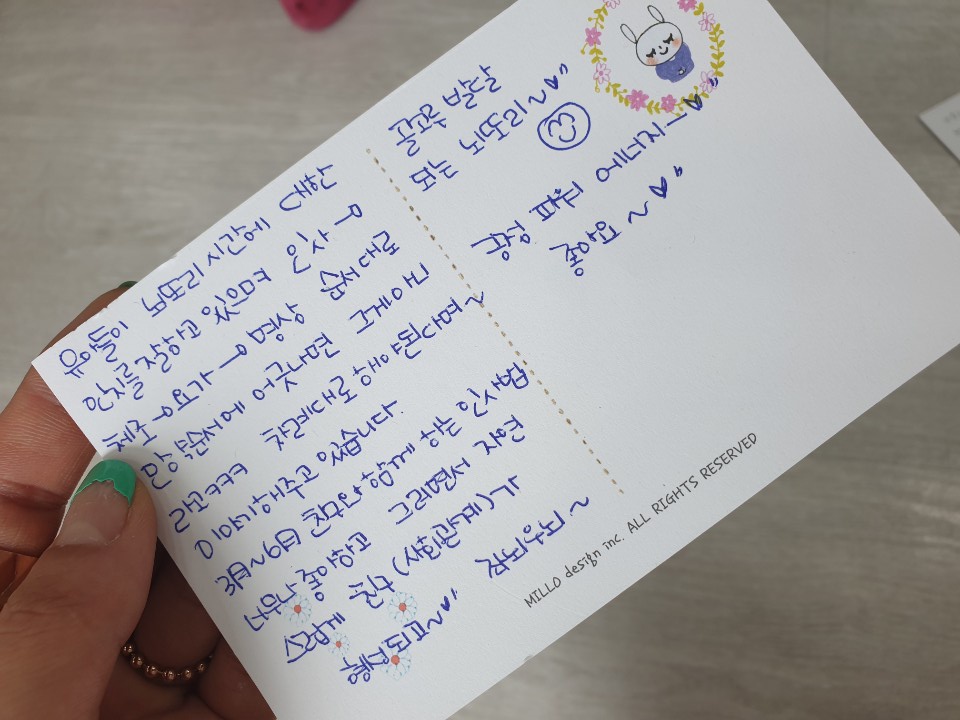 유아들이 뇌또리 시간에 대한
인지를 잘하고 있으며 인사 →
체조 → 요가 → 명상 순서대로
만약 순서에 어긋나면 고게 아니
라고 ㅋㅋㅋ 차례대로 해야된다며~
이야기해주고 있습니다.
3月~6月 친구와 함께 하는 인사법
너무나 좋아하고 그러면서 자연
스럽게 친구(사회관계)가
형성되고~♥" 최고
골고루 발달
되는 뇌또리~♥"
긍정 파워 에너지→♥"
좋아요~♥"
MILLO design inc. ALL RIGHTS RESERVED